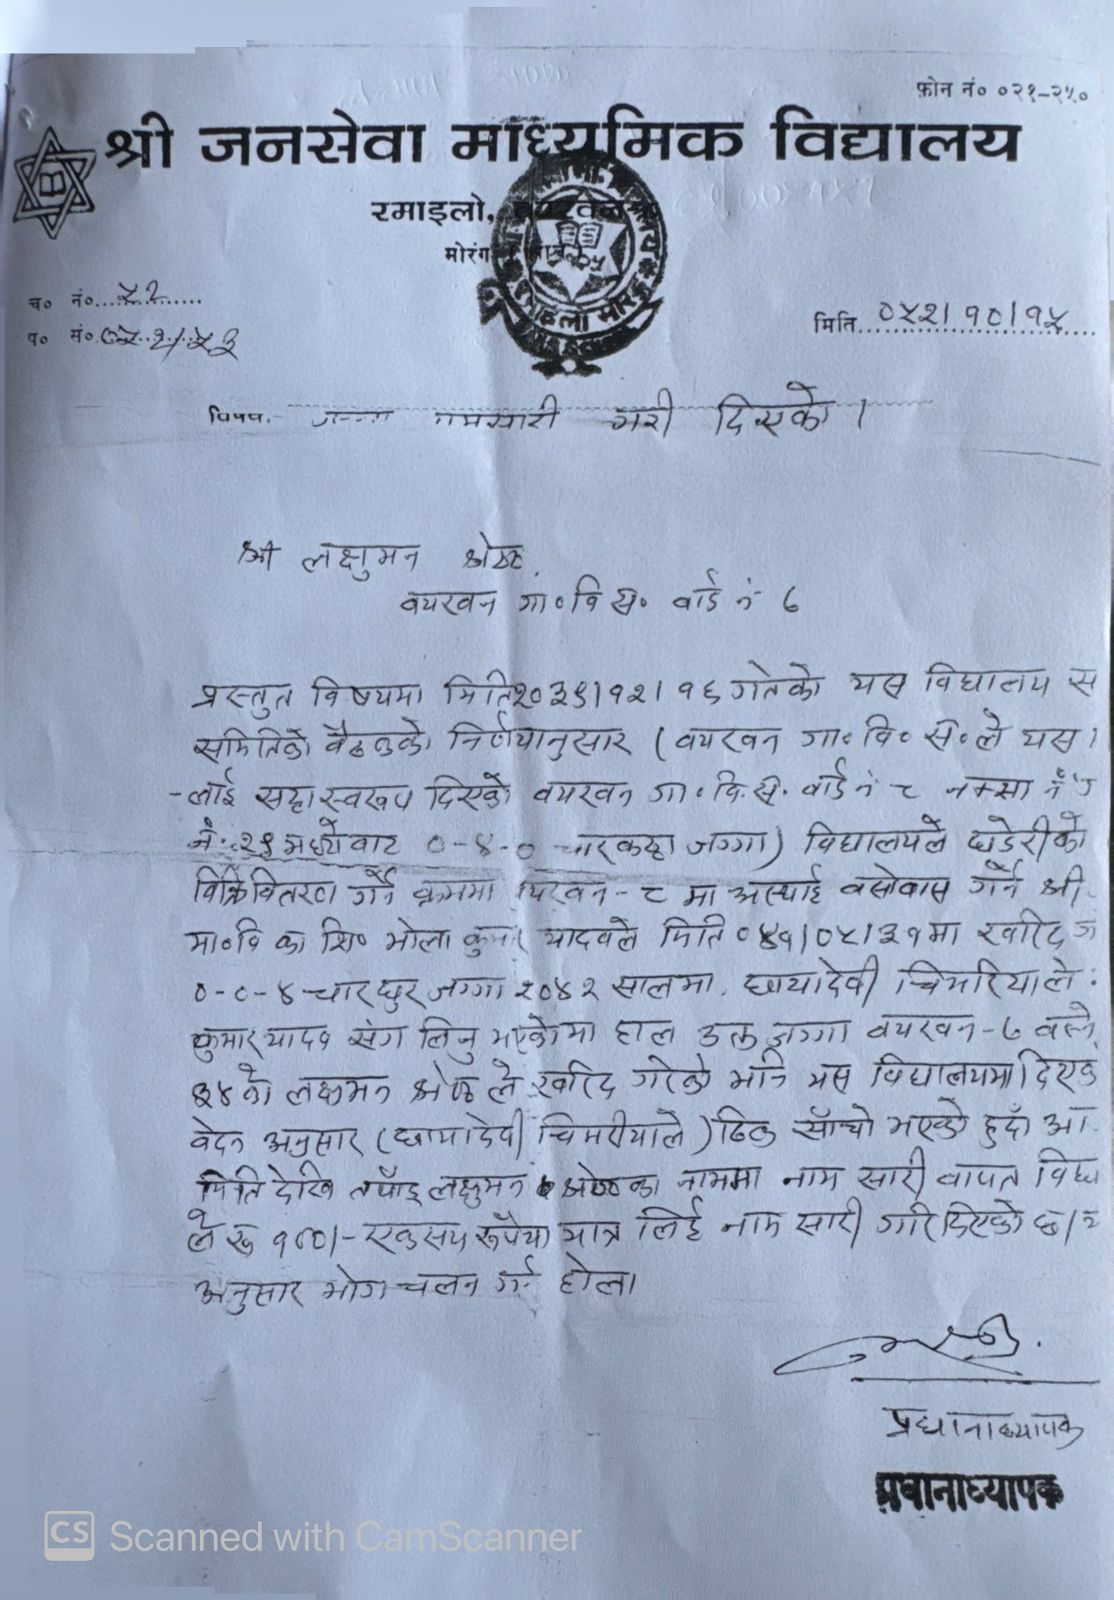 फ़ोन नं० ०२१-२५०
श्री जनसेवा माध्यमिक विद्यालय
रमाइलो,
मोरंग
च० नं०... ५२
प० सं० ०५२/५३
मिति. ०५२/१०/१५
विषय. जग्गा नामसारी गरी दिएको ।
श्री लक्षुमन श्रेष्ठ
वयरवन गा०वि स० वार्ड नं ७
प्रस्तुत विषयमा मिति २०३९/१२/१६ गतेको यस विद्यालय स
समितिको बैठकको निर्णयानुसार (वयरवन गा० वि० स० ले यस
-लाई सट्टा स्वरुप दिएको वयरवन गा.वि.स. वार्ड नं ८ नक्सा नं
नं. २९ मध्येबाट ०-४-० चारकठ्ठा जग्गा) विद्यालयले घडेरीको
विक्रि वितरण गर्ने क्रममा वयरवन-८ मा अस्थाई वसोवास गर्ने श्री
मा०वि का शि० भोला कुमार यादवले मिति ०४१/०५/३१ मा खरिद ज
०-०-४ चार धुर जग्गा २०४२ सालमा. छायादेवी चिमरियाले
कुमार यादव संग लिनु भएकोमा हाल उक्त जग्गा वयरवन-७ वस्ने
३४ को लक्षमन श्रेष्ठ ले खरिद गरेको भनि यस विद्यालयमा दिएक
वेदन अनुसार (छायादेवी चिमरीयाले) ठिक साँचो भएको हुदाँ आ
मिति देखि तपाँइ लक्षुमन श्रेष्ठका नाममा नाम सारी वापत विद्य
ले रु १००/- एकसय रूपैया मात्र लिई नाम सारी गरि दिएको छ।
अनुसार भोग चलन गर्नु होला।
प्रधानाध्यापक
प्रधानाध्यापक
CS Scanned with CamScanner